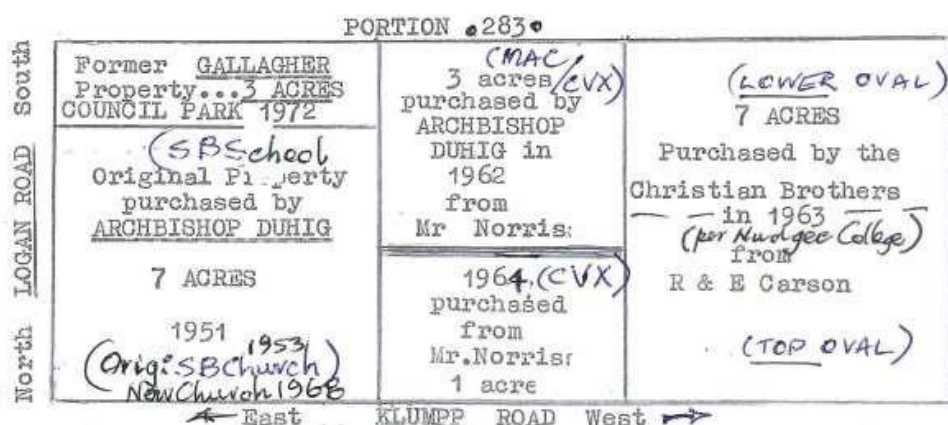 PORTION .283.
South
LOGAN ROAD
North
Former GALLAGHER
Property...3 ACRES
COUNCIL PARK 1972
(SBSchool
Original Property
purchased by
ARCHBISHOP DUHIG
7 ACRES
1951
1953
(Orig: SBChurch)
New Church 1968
(MAC,
3 acres/CVX)
purchased by
ARCHBISHOP
DUHIG in
1962
from
Mr Norris:
1964, (CVX)
purchased
from
Mr.Norris:
1 acre
(LOWER OVAL)
7 ACRES
Purchased by the
Christian Brothers
in 1963
(per Nudgee College)
from
R & E Carson
(TOP OVAL)
East KLUMPP ROAD West